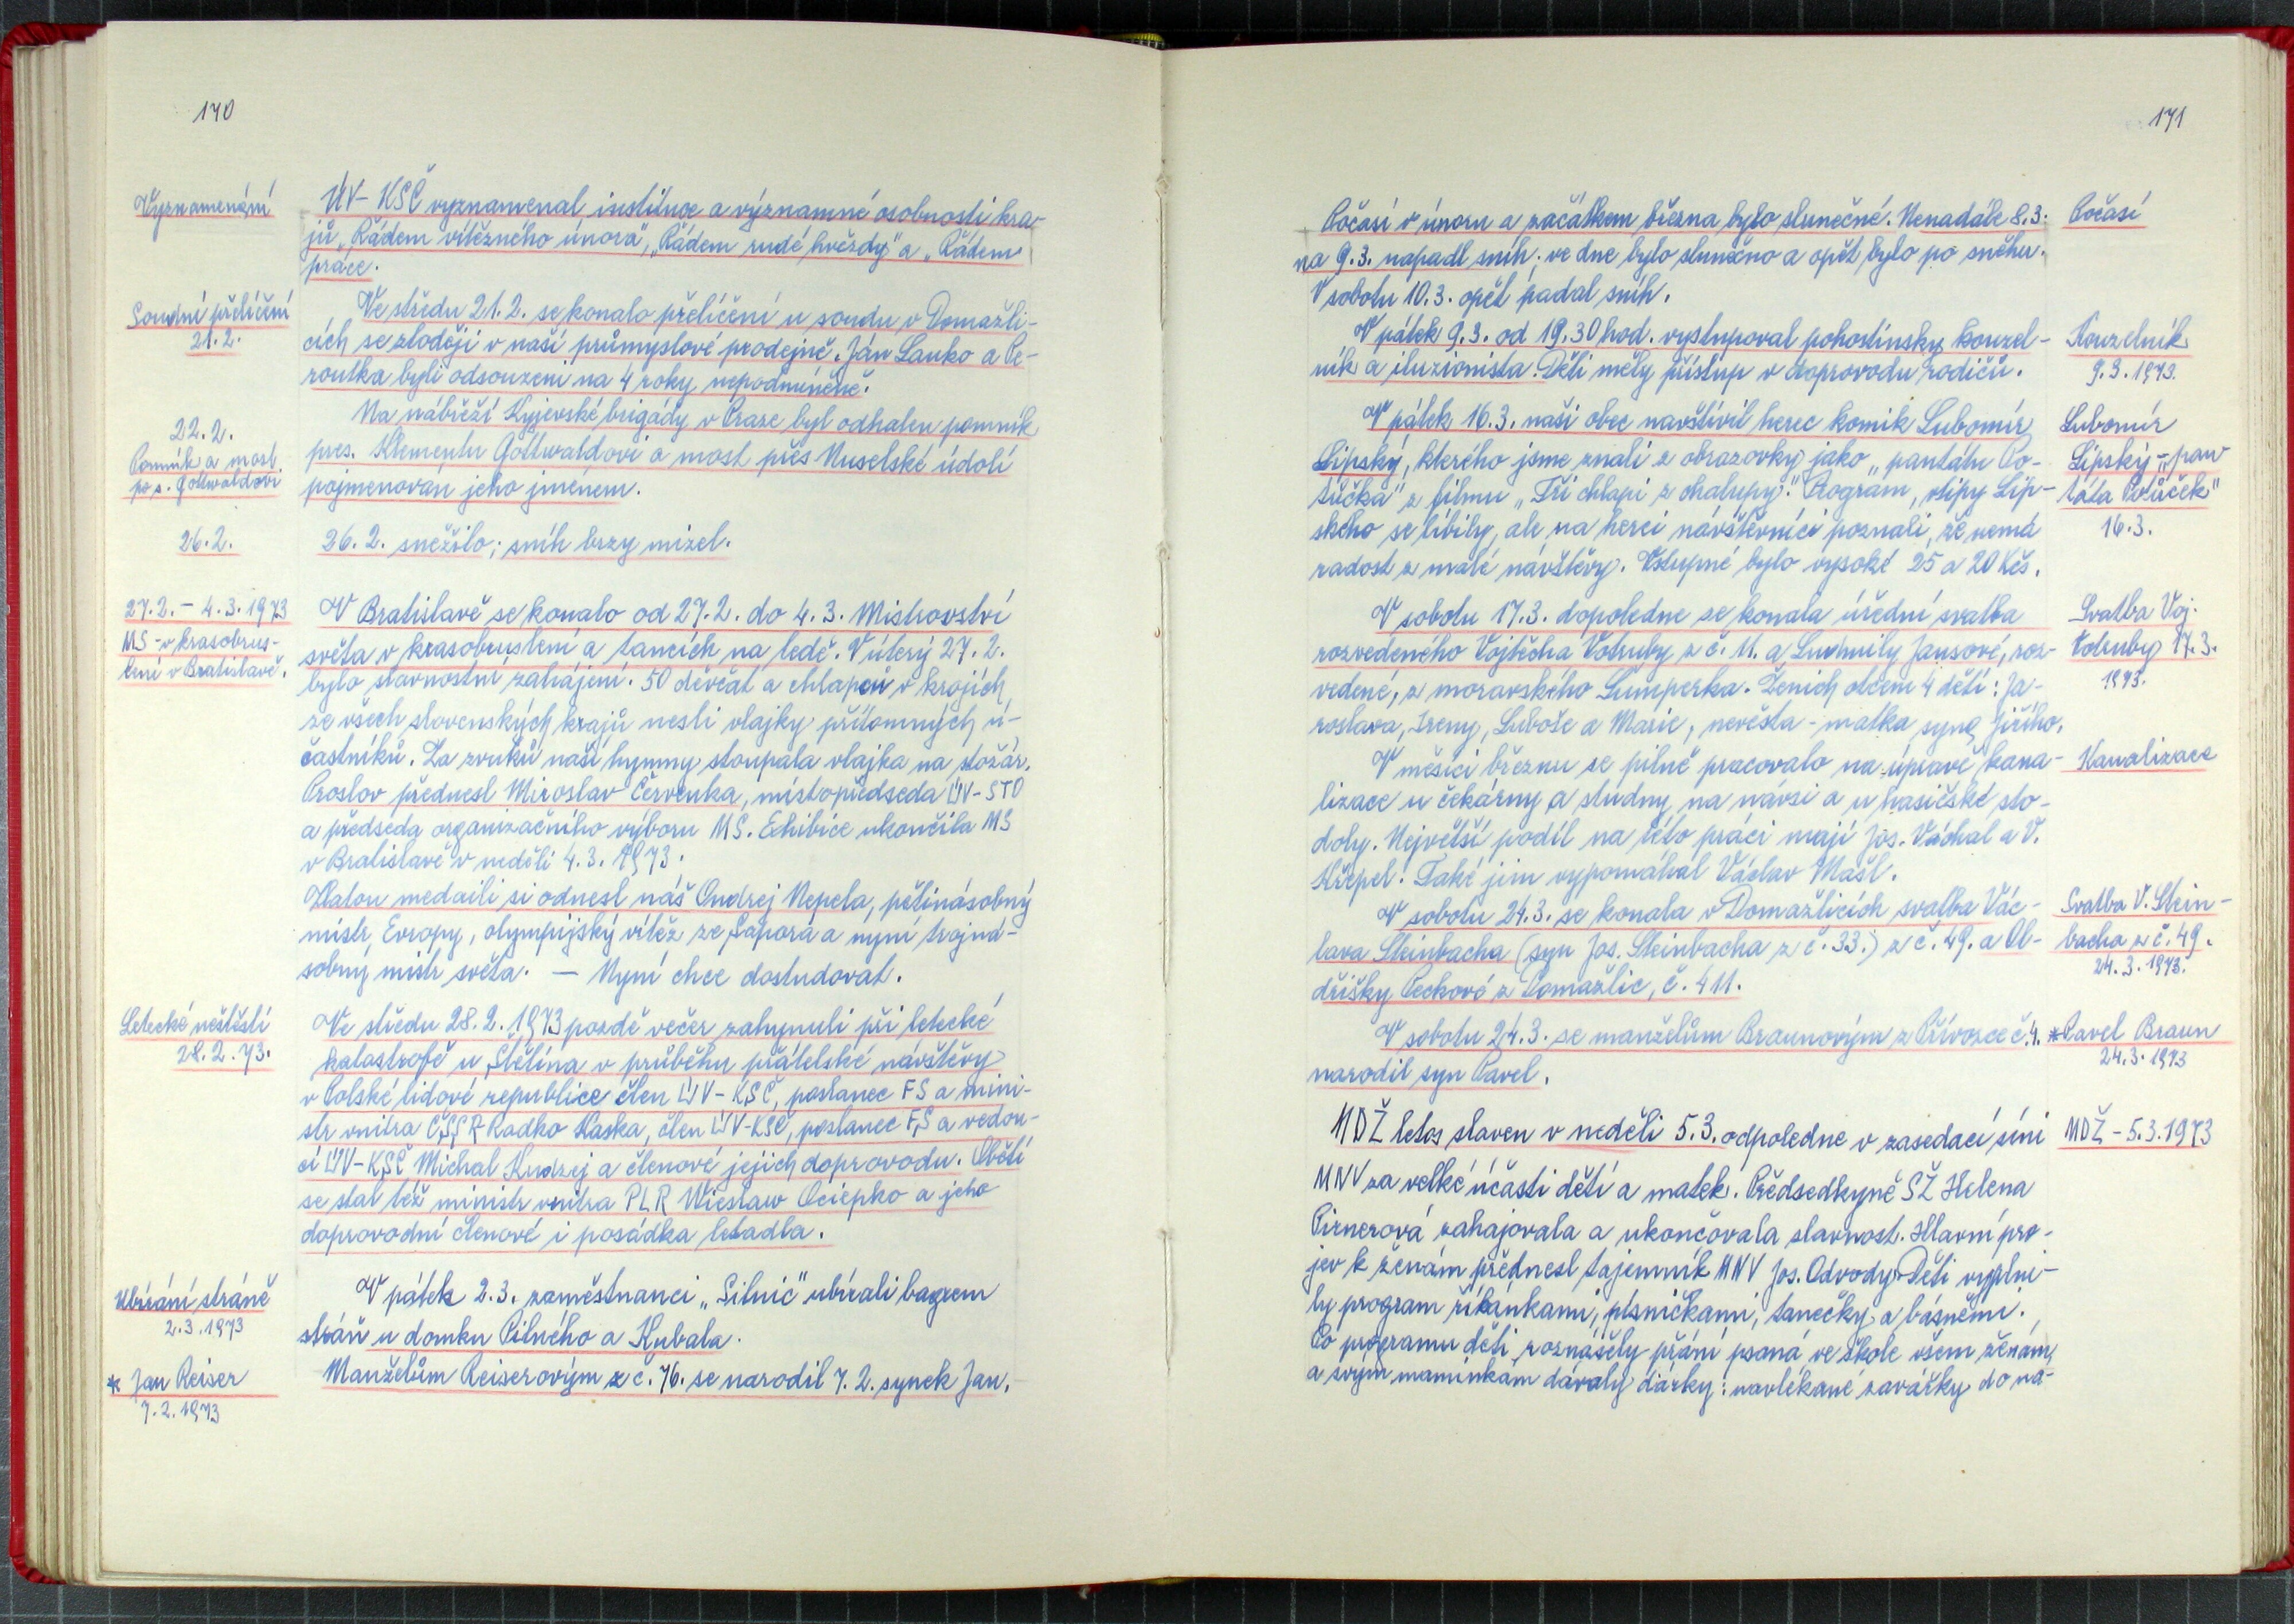 170
Vyznamenání
ÚV-KSČ vyznamenal instituce a významné osobnosti kra-
jů „Řádem vítězného února“, „Řádem rudé hvězdy“ a „Řádem
práce.
Soudní přelíčení
21.2.
Ve středu 21.2. se konalo přelíčení u soudu v Domažli-
cích se zloději v naší průmyslové prodejně. Ján Lauko a Pe-
routka byli odsouzeni na 4 roky nepodmíněně.
22.2.
Pomník a most
po s. Gottwaldovi
Na nábřeží Kyjevské brigády v Praze byl odhalen pomník
pres. Klementu Gottwaldovi a most přes Nuselské údolí
pojmenován jeho jménem.
26.2.
26.2. sněžilo; sníh brzy mizel.
27.2. - 4.3.1973
MS - v krasobrus-
lení v Bratislavě.
V Bratislavě se konalo od 27.2. do 4.3. Mistrovství
světa v krasobruslení a tancích na ledě. V úterý 27.2.
bylo slavnostní zahájení. 50 děvčat a chlapců v krojích
ze všech slovenských krajů nesli vlajky přítomných ú-
častníků. Za zvuků naší hymny stoupala vlajka na stožár.
Proslov přednesl Miroslav Červenka, místopředseda ÚV-STO
a předseda organizačního výboru MS. Exhibice ukončila MS
v Bratislavě v neděli 4.3. 1973.
Zlatou medaili si odnesl náš Ondrej Nepela, pětinásobný
mistr Evropy, olympijský vítěz ze Sapora a nyní trojná-
sobný mistr světa. — Nyní chce dostudovat.
Letecké neštěstí
28.2.73.
Ve středu 28.2.1973 pozdě večer zahynuli při letecké
katastrofě u Štětína v průběhu přátelské návštěvy
v Polské lidové republice člen ÚV-KSČ, poslanec FS a mini-
str vnitra ČSSR Radko Kaska, člen ÚV-KSČ, poslanec FS a vedou-
cí ÚV-KSČ Michal Kudzej a členové jejich doprovodu. Obětí
se stal též ministr vnitra PLR Wieslaw Ociepko a jeho
doprovodní členové i posádka letadla.
Ubírání stráně
2.3.1973
V pátek 2.3. zaměstnanci „Silnic“ ubírali bagrem
stráň u domku Pilného a Kubala.
* Jan Reiser
7.2.1973
Manželům Reiserovým z č. 76. se narodil 7.2. synek Jan.
171
Počasí v únoru a začátkem března bylo slunečné. Nenadále 8.3.
na 9.3. napadl sníh; ve dne bylo slunečno a opět bylo po sněhu.
V sobotu 10.3. opět padal sníh.
Počasí
V pátek 9.3. od 19.30 hod. vystupoval pohostinsky kouzel-
ník a iluzionista. Děti měly přístup v doprovodu rodičů.
Kouzelník
9.3.1973.
V pátek 16.3. naši obec navštívil herec komik Lubomír
Lipský, kterého jsme znali z obrazovky jako „pantátu Po-
tůčka“ z filmu „Tři chlapi z chalupy“. Program, vtipy Lip-
ského se líbily, ale na herci návštěvníci poznali, že nemá
radost z malé návštěvy. Vstupné bylo vysoké 25 a 20 Kčs.
Lubomír
Lipský - „pan
táta Potůček“
16.3.
V sobotu 17.3. dopoledne se konala úřední svatba
rozvedeného Vojtěcha Votruby z č. 11. a Ludmily Jansové, roz-
vedené, z moravského Šumperka. Ženich otcem 4 dětí: Ja-
roslava, Ireny, Luboše a Marie, nevěsta - matka syna Jiřího.
Svatba Voj.
Votruby 17.3.
1973.
V měsíci březnu se pilně pracovalo na úpravě kana-
lizace u čekárny a studny na návsi a u hasičské sto-
doly. Největší podíl na této práci mají Jos. Váchal a V.
Křepel. Také jim vypomáhal Václav Mašl.
Kanalizace
V sobotu 24.3. se konala v Domažlicích svatba Vác-
lava Steinbacha (syn Jos. Steinbacha z č. 33.) z č. 49. a Ol-
dřišky Peckové z Domažlic, č. 411.
Svatba V. Stein-
bacha z č. 49.
24.3.1973.
V sobotu 24.3. se manželům Braunovým z Přívozce č. 4.
narodil syn Pavel.
* Pavel Braun
24.3.1973
MDŽ letos slaven v neděli 5.3. odpoledne v zasedací síni
MNV za velké účasti dětí a matek. Předsedkyně SŽ Helena
Pirnerová zahajovala a ukončovala slavnost. Hlavní pro-
jev k ženám přednesl tajemník MNV Jos. Odvody. Děti vyplni-
ly program říkankami, písničkami, tanečky a básněmi.
Po programu děti roznášely přání psaná ve škole všem ženám,
a svým maminkám dávaly dárky: navlékané zavářky do ná-
MDŽ - 5.3.1973